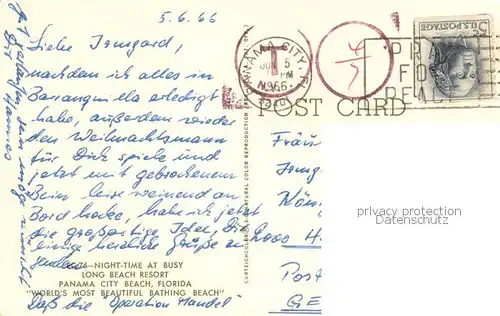 5.6.66
Liebe Irmgard,
nachdem ich alles in
Baranquilla erledigt
habe, außerdem wieder
den Weihnachtsmann
für Dich spiele und
jetzt mit gebrochenem
Bein leise weinend an
Bord hocke, habe ich jetzt
die großartige Idee, Dir
einige herzliche Grüße zu
senden.
Daß die "Operation Handel"
gut
Hannes
6—NIGHT-TIME AT BUSY
LONG BEACH RESORT
PANAMA CITY BEACH, FLORIDA
"WORLD'S MOST BEAUTIFUL BATHING BEACH"
CURTEICHCOLOR NATURAL COLOR REPRODUCTION
PANAMA CITY, FL
JUN 5
PM
1966
T
U.S. POSTAGE
5¢
PR
FO
PEA
POST CARD
Fräu
Irmg
Köni
2000 H
Post
GE
privacy protection
Datenschutz